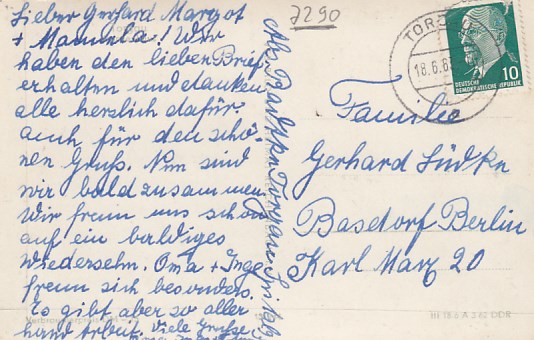 Lieber Gerhard Margot
+ Manuela! Wir
haben den lieben Brief
erhalten und danken
alle herzlich dafür.
auch für den schö-
nen Gruß. Nun sind
wir bald zusammen.
Wir freun uns schon
auf ein baldiges
Wiedersehn. Oma + Inge
freun sich besonders.
Es gibt aber so aller
hand Arbeit. Viele Grüße
7290
TORGAU
18.6.6
10
DEUTSCHE
DEMOKRATISCHE REPUBLIK
Familie
Gerhard Lüdke
Basdorf Berlin
Karl Marx 20
III 18 6 A 3 62 DDR